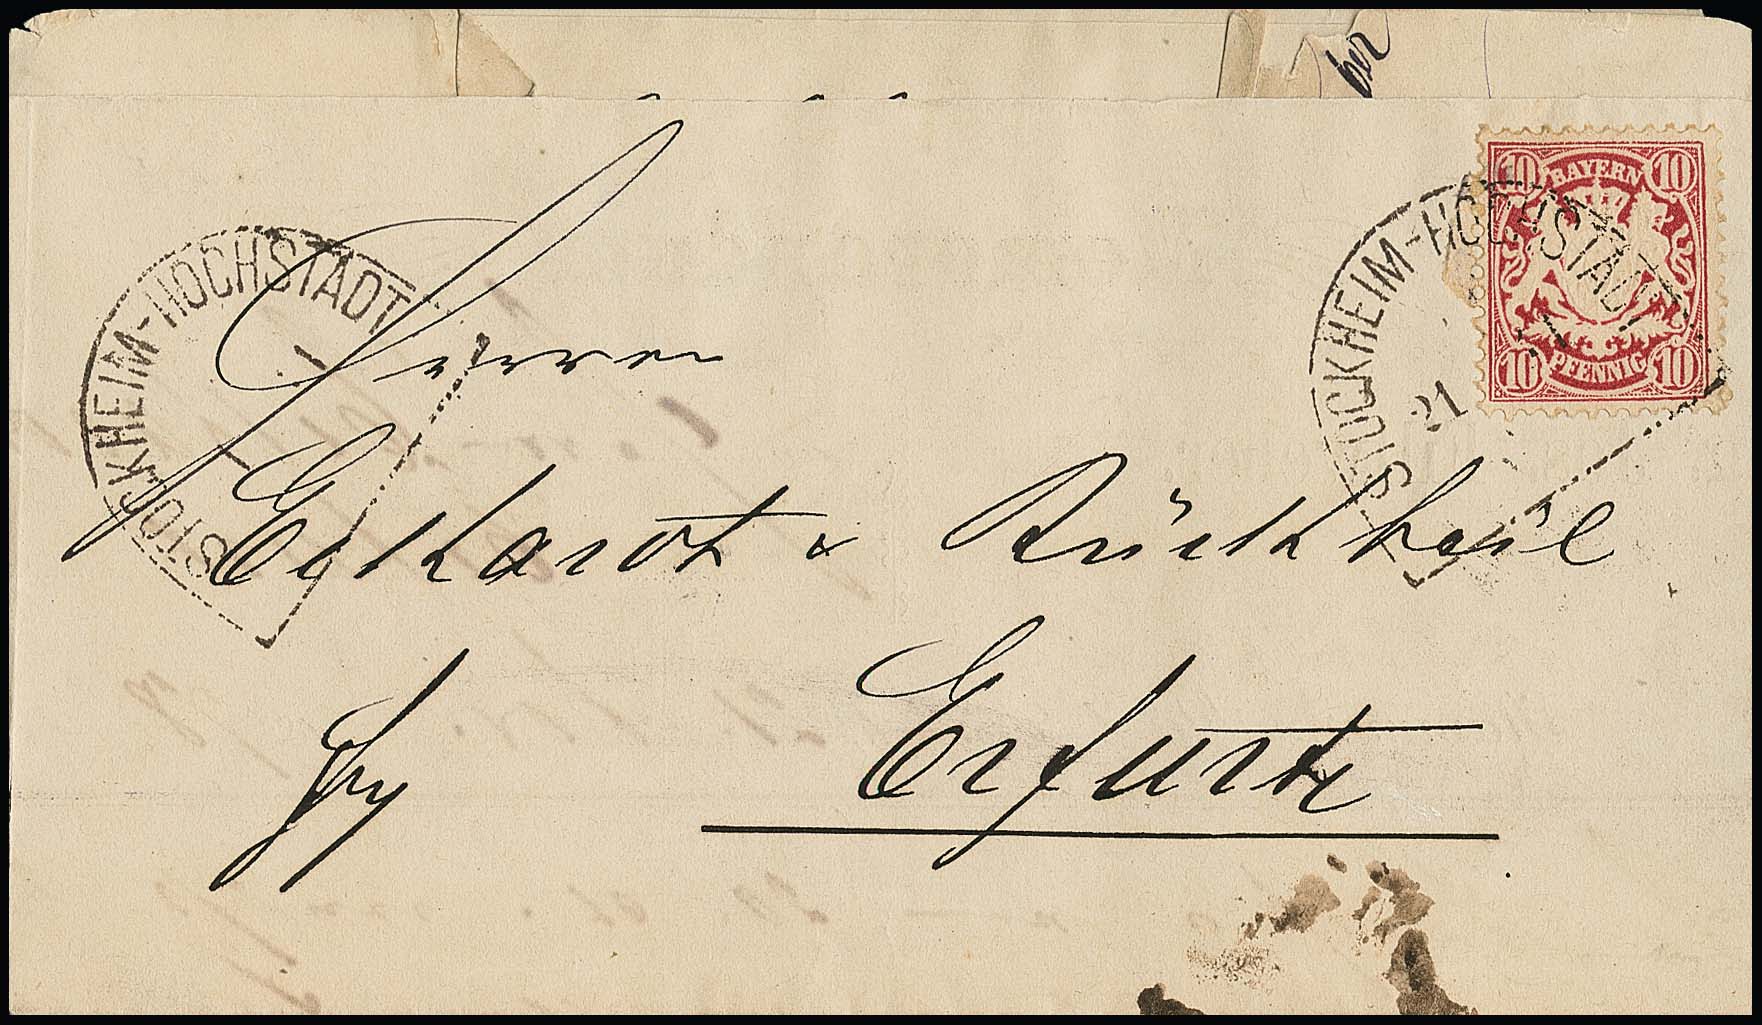 10 BAYERN 10
10 PFENNIG 10
STOCKHEIM-HOCHSTADT
STOCKHEIM-HOCHSTADT
21
Herren
Eckardt &
Erfurt